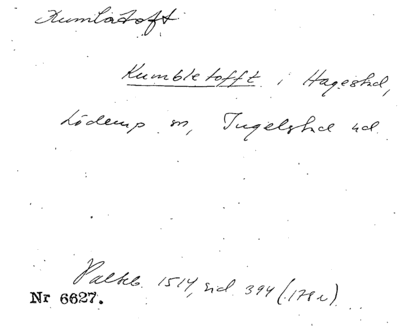 Kumlatoft
Kumbletofft i Hagestad,
Löderup sn, Ingelstad hd
Palteb. 1514, sid. 394 (.179 r)
Nr 6627.